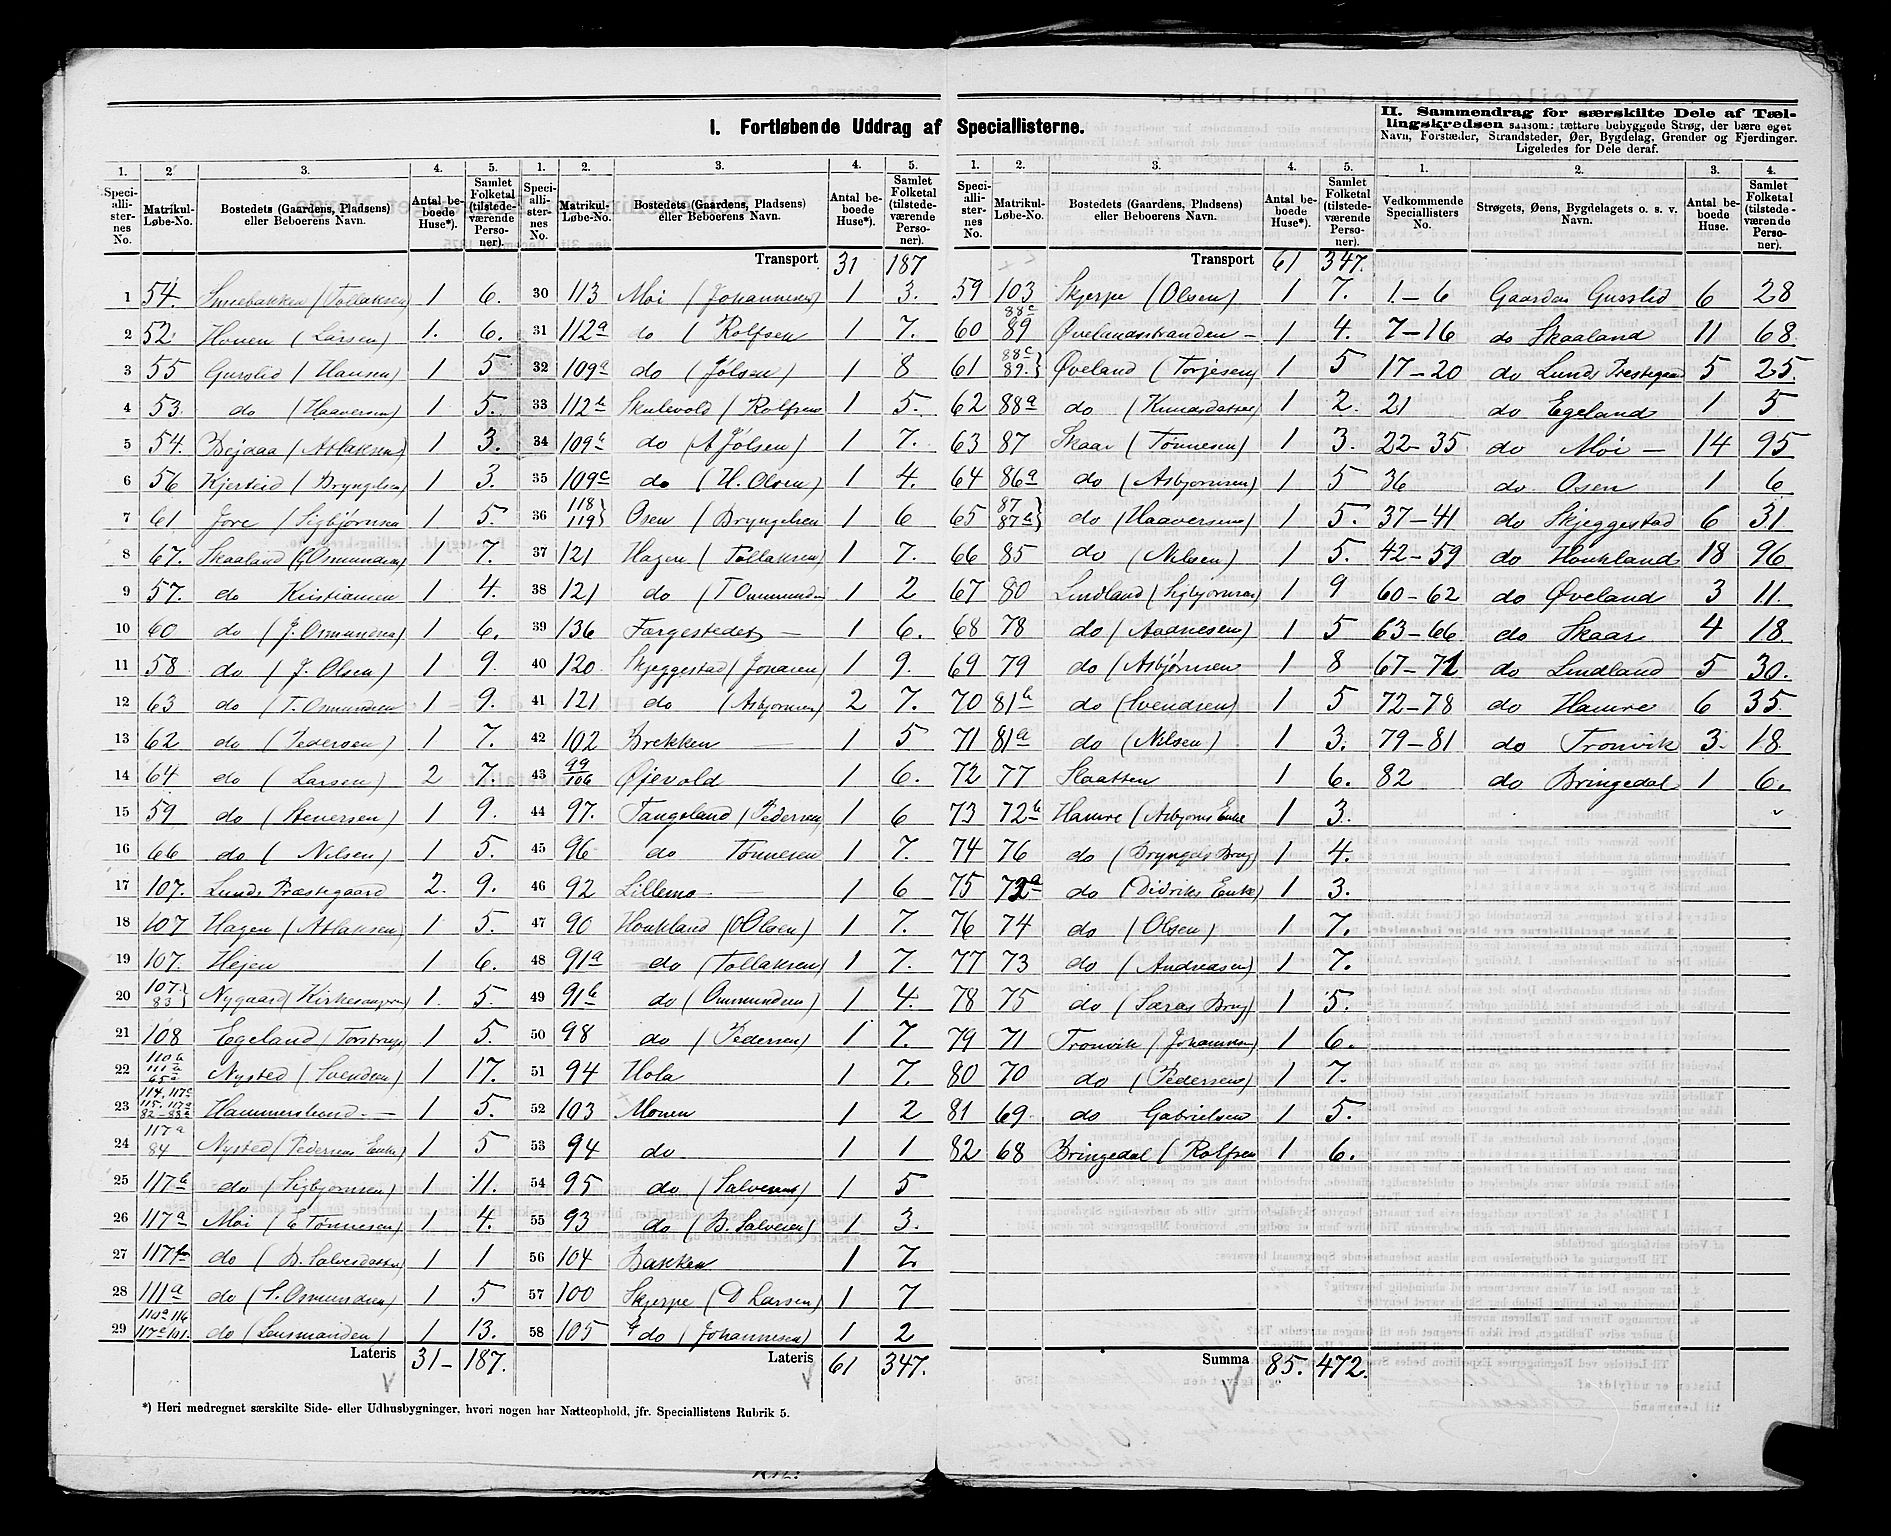 I. Fortløbende Uddrag af Speciallisterne.
II. Sammendrag for særskilte Dele af Tællingskredsen saasom: tættere bebyggede Strøg, der bære eget
Navn, Forstæder, Strandsteder, Øer, Bygdelag, Grender og Fjerdinger.
Ligeledes for Dele deraf.
1. 2 3. 4. 5.
Speciallisternes No. Matrikul-Løbe-No. Bostedets (Gaardens, Pladsens) eller Beboerens Navn. Antal beboede Huse*). Samlet Folketal (tilstedeværende Personer).
1 54. Snuebakken (Tollaksen 1 6.
2 52 Hoven (Larsen) 1. 6.
3 55 Gurslid (Hansen) 1 5
4 53. do (Haaversen) 1 5.
5 54. Bejdaa (Aslaksen) 1 3.
6 56 Kjerlied (Bryngelsen) 1 3.
7 61 Jore (Sigbjørnsen 1 5.
8 67. Skaaland (Osmundsen) 1 7.
9 57. do Kristiansen 1 4.
10 60 do (J. Osmundsen) 1 6.
11 58 do (J. Olsen) 1 9.
12 63 do (T. Osmundsen 1 9.
13 62 do (Pedersen) 1 7.
14 64 do (Larsen) 2 7.
15 59 do (Seversen) 1 9.
16 66 do (Nilsen) 1 5.
17 107. Lunds Præstegaard 2. 9.
18 107 Hagen (Aslaksen) 1 5.
19 107. Hejen 1 6.
20 107. 83 } Nygaard (Kirkesangeren 1. 5.
21 108 Egeland (Torstrup) 1 5.
22 110b 111b 65a Nysted (Svendsen) 1 17.
23 114. 117c 115. 117a 82-83a Hammerslund - 1 5.
24 117a 84 Nysted (Pedersens Enke) 1 5
25 117b do (Sigbjørnsen) 1 11.
26 117a Moi (E Tønnesen) 1 4.
27 do (B. Salvesdatter) 1 1
28 111a do (S. Osmundsen) 1 5
29 110a 116 117c 101. do (Lensmanden) 1 13.
Lateris 31- 187.
1. 2. 3. 4. 5.
Speciallisternes No. Matrikul-Løbe-No. Bostedets (Gaardens, Pladsens) eller Beboerens Navn. Antal beboede Huse*). Samlet Folketal (tilstedeværende Personer).
Transport 31 187
30 113 Moi (Johannesen) 1 3.
31 112a do (Rolfsen 1 7.
32 109a do (Jølsen) 1 8
33 112b Skulevold (Rolfsens 1 5.
34 109b do (A Jølsen) 1 7.
35 109c do (H. Olsen) 1 4.
36 118 119 } Osen (Bryngelsen 1 6
37 121 Hagen (Tollaksen) 1 7.
38 121 do (T Ommunds- 1 2
39 136 Færgestedet - 1 6.
40 120. Skjeggestad (Jonasen) 1 9.
41 121 do (Asbjørnsen) 2 7.
42 102 Brekken 1 5
43 99 106 Øjevold 1 6.
44 97. Tangeland (Pedersen 1 6
45 96 do Tønnesen 1 7.
46 92 Lillemo 1 6
47 90 Houkland (O Olsen) 1 7.
48 91a do (Tollaksen) 1 7.
49 91b do (Ommundsen) 1 4.
50 98 do (Pedersen) 1 7.
51 94 Hola 1 7.
52 103 Monen 1 2
53 94 do 1 1
54 95 do (Salvesens) 1 5
55 93 do (B. Salvesen) 1 3.
56 104 Bakken 1 7.
57 100 Skjerpe (D Larsen) 1 7
58 105 do (Johannesen) 1 2
Lateris 61 347.
1. 2. 3. 4. 5.
Speciallisternes No. Matrikul-Løbe-No. Bostedets (Gaardens, Pladsens) eller Beboerens Navn. Antal beboede Huse*). Samlet Folketal (tilstedeværende Personer).
Transport 61 347.
59 103 Skjerpe (Olsen) 1 7.
60 88c 89 Øvelandsstranden - 1 4.
61 88c 89. } Øveland (Torjesen) 1 5
62 88a do (Knudsdatter) 1 2.
63 87 Skaar (Tønnesen) 1 3.
64 86a do (Asbjørnsen) 1 5
65 87 87b } do (Haaversens) 1 5.
66 85 do (Nilsen) 1 5.
67 80 Lindland (Sigbjørnsen) 1 9
68 78 do (Aadnesens) 1 5
69 79 do (Asbjørnsen 1 8
70 81b do (Svendsen) 1 5
71 81a do (Nilsen) 1 3.
72 77 Slaatten 1 6.
73 72b Hamre (Asbjørns Enke 1 3.
74 76 do (Bryngels Brug) 1 4.
75 72a do (Didriks Enke) 1 3.
76 74 do (Olsen) 1 7.
77 73 do (Andreasen) 1 7.
78 75 do (Saras Brug) 1 5.
79 71 Tronvik (Johannesen) 1 6.
80 70 do (Pedersens) 1 7.
81 69. do Gabrielsen 1 5.
82 68 Bringedal (Rolfsen 1 6.
Summa 85. 472.
1. 2. 3. 4.
Vedkommende Speciallisters No. Strøgets, Øens, Bygdelagets o. s. v. Navn. Antal beboede Huse. Samlet Folketal (tilstedeværende Personer).
1-6 Gaarden Gurslid 6 28
7-16 do Skaaland 11 68.
17-20 do Lunds Prestegaard 5 25.
21 do Egeland 1 5
22-35 do Moi - 14 95
36 do Osen 1 6
37-41 do Skjeggestad 6 31
42-59 do Houkland 18 96
60-62 do Øveland 3 11.
63-66 do Skaar 4 18
67-71 do Lindland 5 30.
72-78 do Hamre 6 35
79-81 do Tronvik 3. 18.
82 do Bringedal 1 6.
*) Heri medregnet særskilte Side- eller Udhusbygninger, hvori nogen har Natteophold, jfr. Speciallistens Rubrik 5.